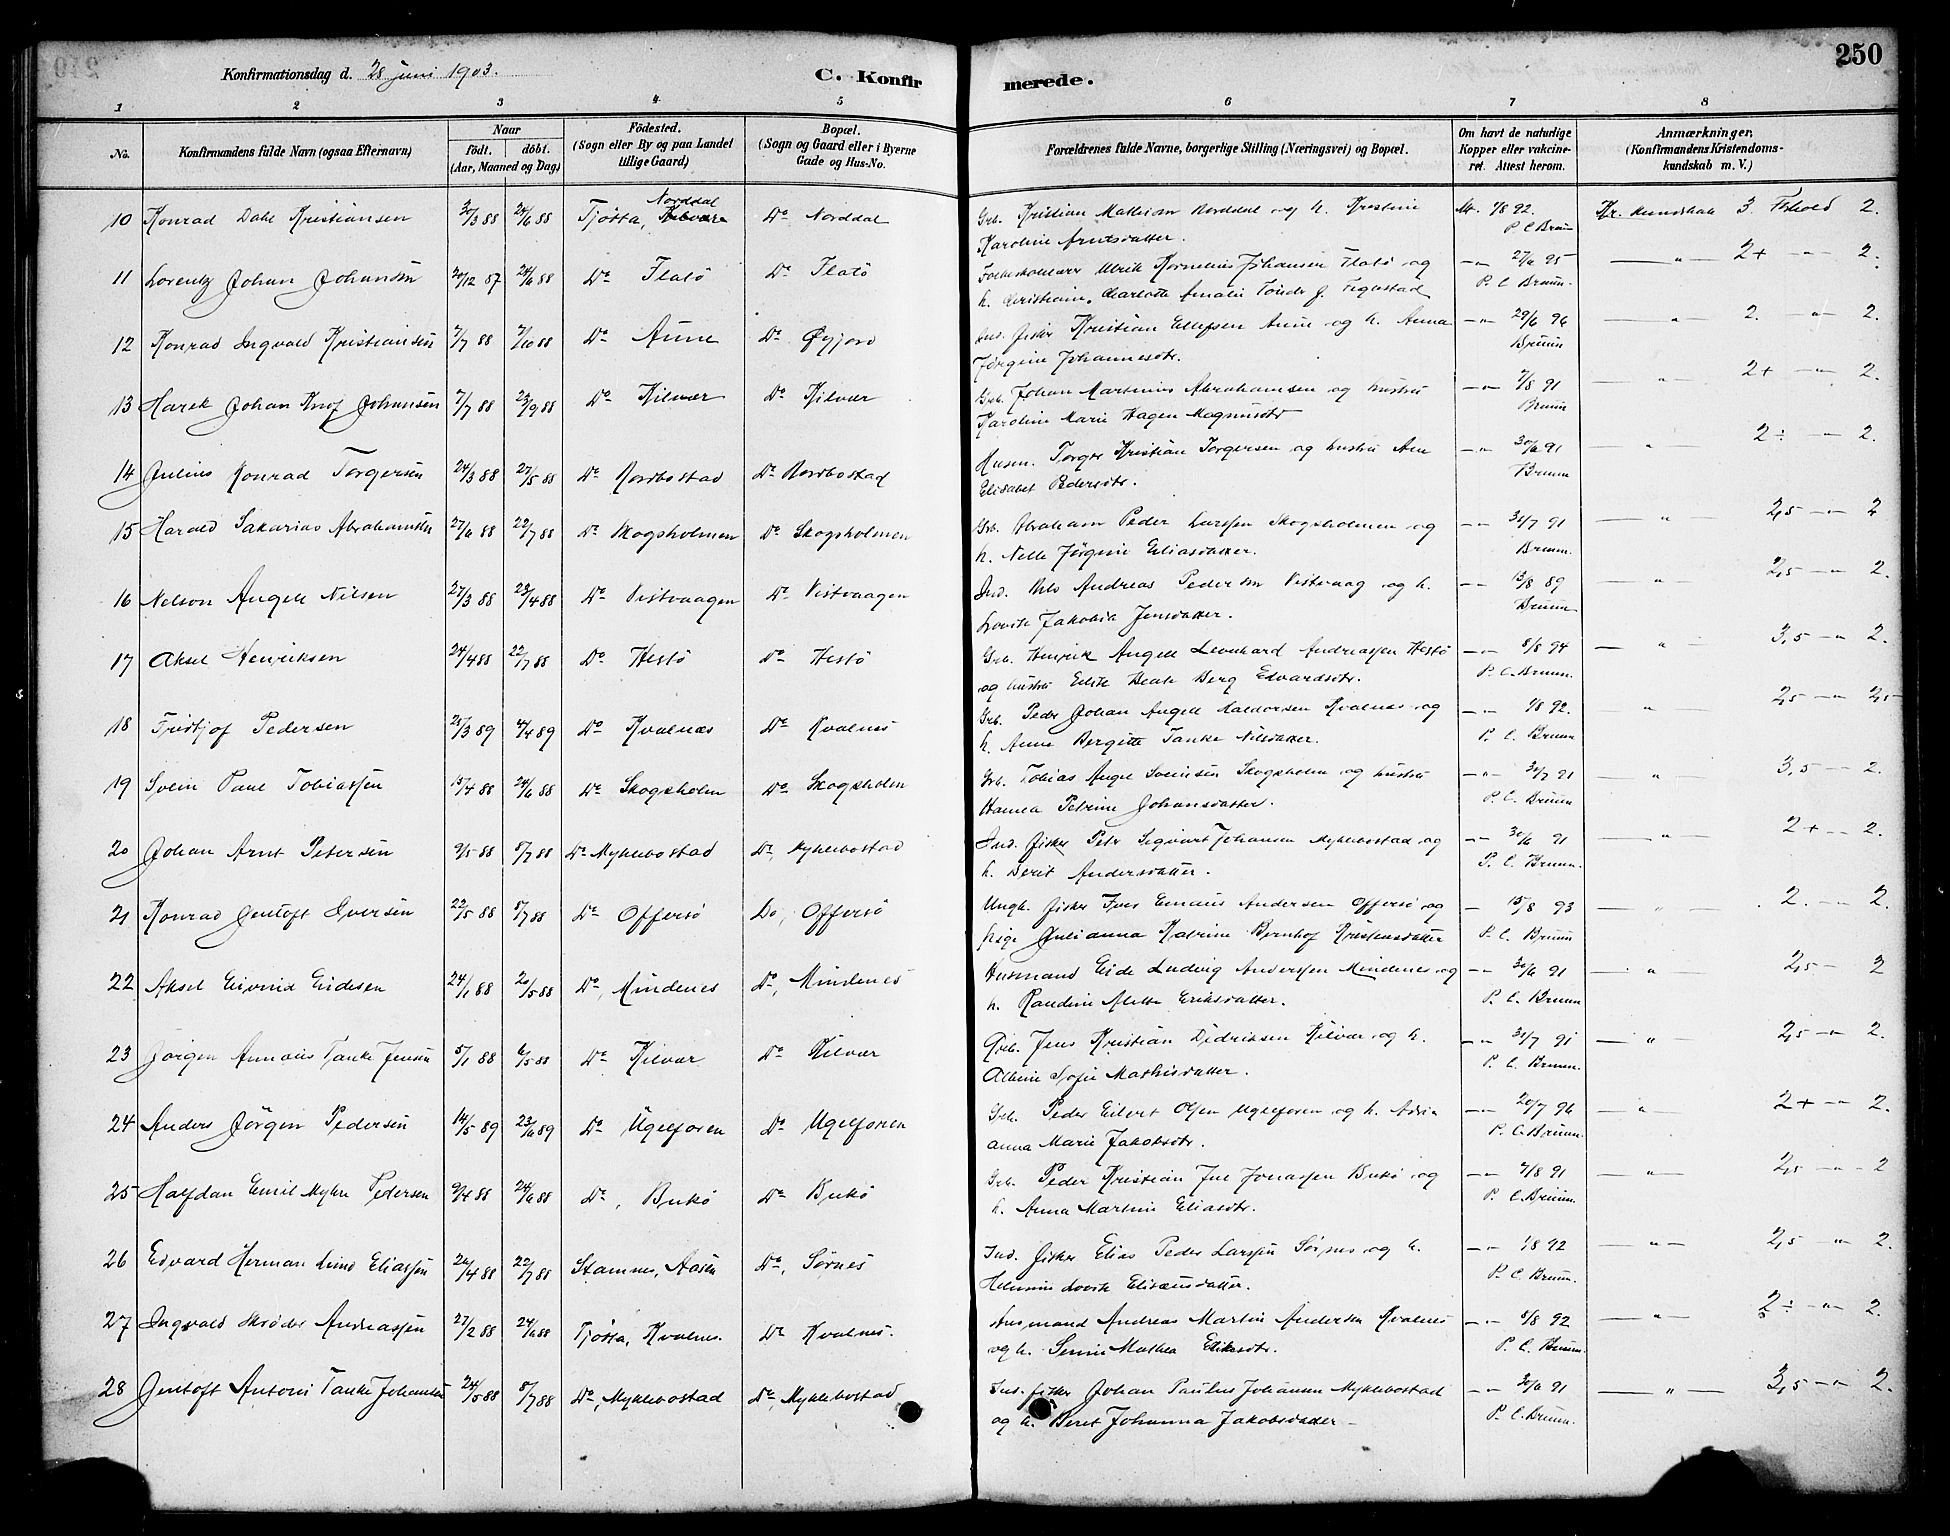 250
Konfirmationsdag d. 28 juni 1903.
C. Konfirmerede.
1 2 3 4 5 6 7 8
No.
Konfirmandens fulde Navn (ogsaa Efternavn)
Naar
født. døbt.
(Aar, Maaned og Dag)
Fødested.
(Sogn eller By og paa Landet
tillige Gaard)
Bopæl.
(Sogn og Gaard eller i Byerne
Gade og Hus-No.
Forældrenes fulde Navne, borgerlige Stilling (Næringsvei) og Bopæl.
Om havt de naturlige
Kopper eller vakcine-
ret. Attest herom.
Anmærkninger.
(Konfirmandens Kristendoms-
kundskab m. V.)
10 Konrad Dahl Kristiansen 30/3 88 24/6 88 Tjøtta, Norddal Do Norddal Grb. Kristian Mathias Norddal og h. Kristine
Karoline Arntsdatter. 1/8 92. P. C. Bruun Kr. kundskab 3. Forhold 2.
11 Lorentz Johan Johansen 20/12 87 24/6 88 Do Flatø Do Flatø Ulrik Kornelius Johansen Flatø og
h. Charlotte Amalie Tønder f. 27/6 95 P. C. Bruun. — " — 2+ — " — 2.
12 Konrad Ingvald Kristiansen 7/7 88 7/10 88 Do Aune Do Øyjord Ind. Fisker Kristian Ellefsen Aune og h. Anna
Jørgine Johannesdtr. — " — 29/6 96 Bruun — " — 2. — " — 2.
13 Harek Johan Knof Johansen 7/7 88 23/9 88 Do Kilvær Do Kilvær Grb. Johan Martinius Abrahamsen og hustru
Karoline Marie Hagen Magnusdtr — " — 7/8 91 Bruun — " — 2+ — " — 2.
14 Julius Konrad Torgersen 24/3 88 27/5 88 Do Nordbostad Do Nordbostad Husm. Torger Kristian Torgersen og hustru Ane
Elisabet Pedersdtr. — " — 30/6 91 Bruun — " — 2÷ — " — 2.
15 Harald Sakarias Abrahamsen 27/6 88 22/7 88 Do Skogsholmen Do Skogsholmen Grb. Abraham Peder Larssen Skogsholmen og
h. Nelle Jørgine Eliasdatter. — " — 31/7 91 Bruun. — " — 2,5 — " — 2
16 Nelson Angell Nilsen 27/3 88 23/4 88 Do Vistvaagen Do Vistvaagen Ind. Nils Andreas Pedersen Vistvaag og h.
Lovise Jakobia Jensdatter. — " — 13/8 89 Bruun — " — 2,5 — " — 2.
17 Aksel Henriksen 24/4 88 22/7 88 Do Hestø Do Hestø Grb. Henrik Angell Leonhard Andreassen Hestø
og hustru Beate Berg Edvardsdtr. — " — 8/8 94 P. C. Bruun. — " — 3,5 — " — 2.
18 Fridtjof Pedersen 4/4 89 Do Kvalnæs Do Kvalnes Grb. Peder Johan Angell Haldorsen Kvalnes og
h. Anne Bergitte Tanke Nilsdatter. — " — 1/8 92. P. C. Bruun — " — 2,5 — " — 2,5
19 Svein Paul Tobiassen 15/4 88 24/6 88 Do Skogsholm Do Skogsholm Grb. Tobias Angel Sveinsen Skogsholm og hustru
Hansea Petrine Johansdatter. — " — 31/7 91 P. C. Bruun — " — 3,5 — " — 2
20 Johan Arnt Petersen 9/5 88 8/7 88 Do Myklebostad Do, Myklebostad Ind. Fisker Peter Sigvart Johansen Myklebostad og
h. Berit Andersdatter. — " — 30/6 91 P. C. Bruun. — " — 2+ — " — 2.
21 Konrad Jentoft Iversen 22/5 88 8/7 88 Do Offersø Do, Offersø Ungk. fisker Iver Andersen Offersø og
pige Julianna Katrine Bernhof Kristensdatter — 15/8 93 P. C. Bruun — " — 2. — " — 2.
22 Aksel Eivind Eidesen 24/1 88 20/5 88 Do, Mindenes Do, Mindenes Husmand Eide Ludvig Anderssen Mindenes og
h. Randine Mette Eriksdatter. — " — 30/6 91 P. C. Bruun — " — 2,5 — 2
23 Jørgen Tanke Jensen 5/1 88 6/5 88 Do Kilvær Do Kilvær Grb. Jens Kristian Didriksen Kilvær og h.
Albine Sofie Mathisdatter. — " — 31/7 91 P. C. Bruun. — " — 2,5 — " — 2.
24 Anders Jørgen Pedersen 14/5 89 23/6 89 Do Ugelforen Do Ugelforen Grb. Peder Eilert Olsen Ugelforen og h. Adria
anna Marie Jakobsdtr. — " — 20/7 96 P. C. Bruun. — " — 2+ — " — 2.
25 Halfdan Emil Myhre Pedersen 9/4 88 24/6 88 Do, Bukø Do Bukø Grb. Peder Kristian Jonassen Bukø og
h. Anna Martine Eliasdtr. — " — 7/8 91 P. C. Bruun. — " — 2,5 — " — 2
26 Edvard Herman Lind Eliassen 26/4 88 22/7 88 Stamnes, Aasen Do, Sørnes Ind. fisker Elias Peder Larssen Sørnes og h.
Lovise Elisæusdatter. — " — 1/8 92 P. C. Bruun. — " — 2,5 — " — 2.
27 Ingvald Skrøder Andreassen 27/2 88 24/6 88 Tjøtta, Kvalnes Do Kvalnes. Husmand Andreas Martin Andersen Kvalnes
og h. Mathea — " — 8/8 92 P. C. Bruun. — " — 2÷ — " — 2.
28 Jentoft Antoni Tanke Johansen 24/5 88 8/7 88 Do, Myklebostad Do, Myklebostad Ind. fisker Johan Paulus Johansen Myklebostad
og h. Beret Johanna Jakobsdatter — — " — 30/6 91 P. C. Bruun. — " — 3,5 — " — 2.